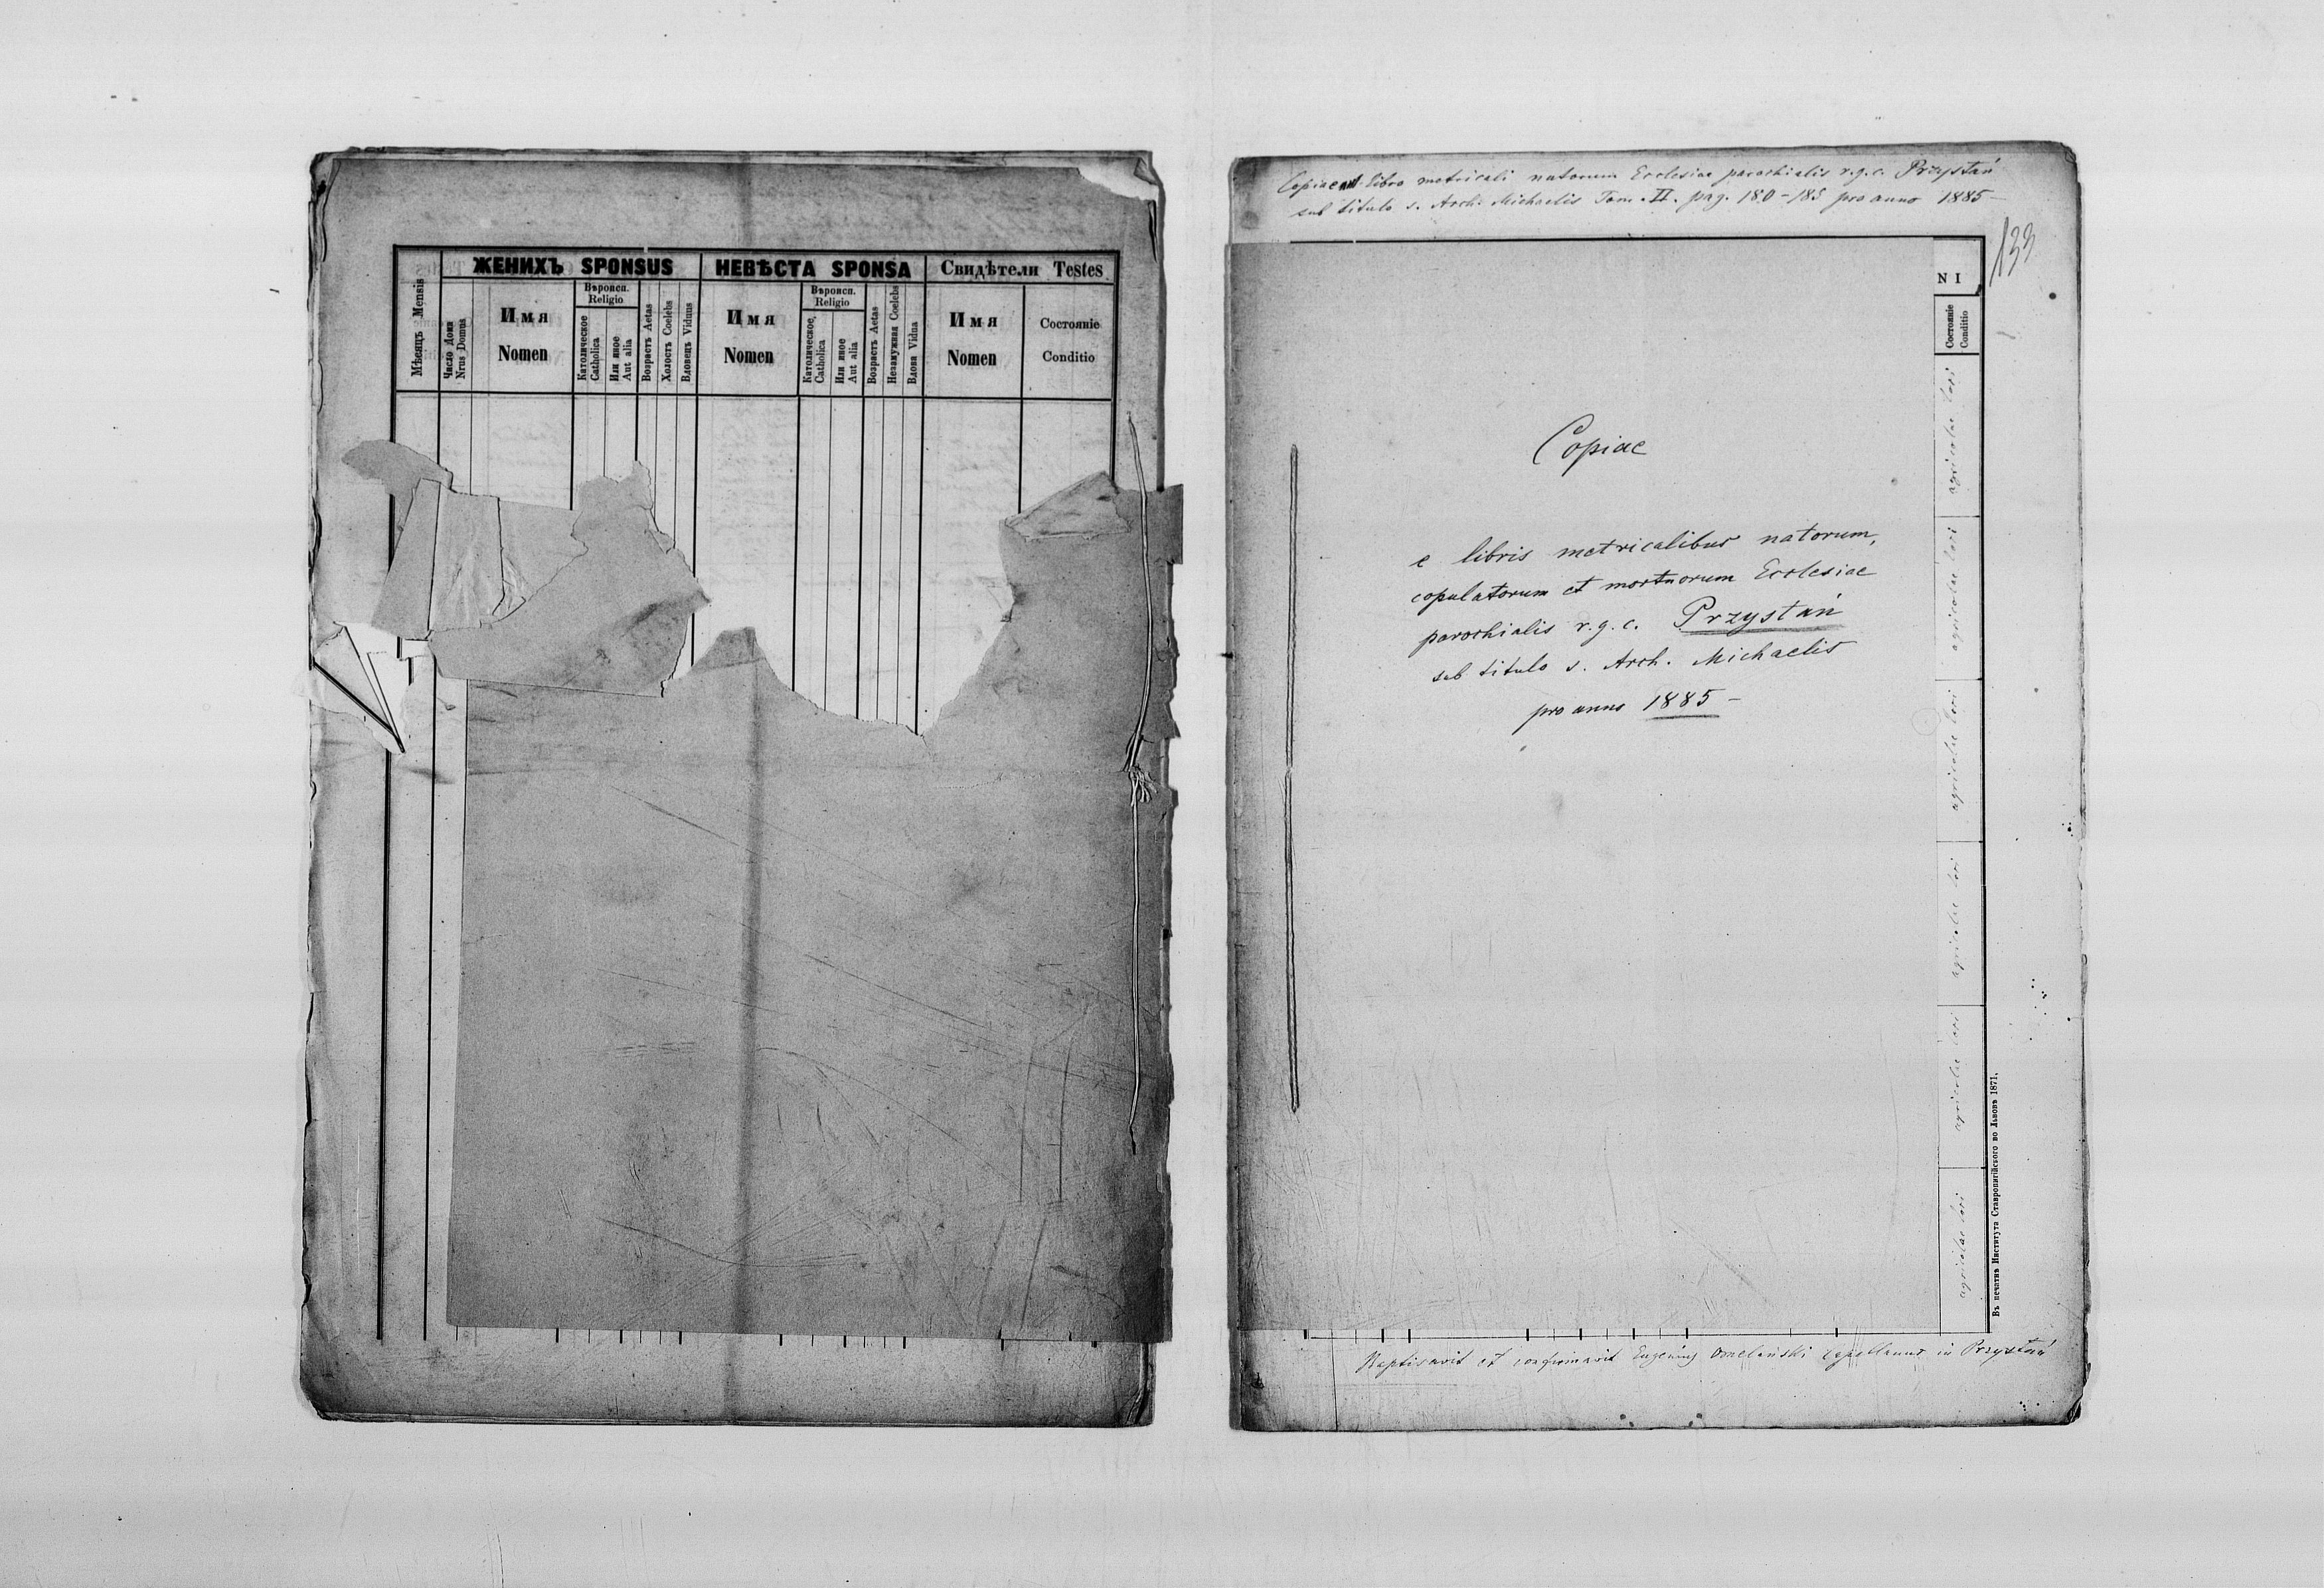 ЖЕНИХЪ SPONSUS
НЕВѢСТА SPONSA
Свидѣтели Testes
Мѣсяцъ Mensis
Число Дома
Nrus Domus
Имя
Nomen
Вѣроисп.
Religio
Католическое
Catholica
Или иное
Aut alia
Возрастъ Aetas
Холостъ Coelebs
Вдовецъ Viduus
Имя
Nomen
Вѣроисп.
Religio
Католическое,
Catholica
Или иное
Aut alia
Возрастъ Aetas
Незамужная Coelebs
Вдова Vidua
Имя
Nomen
Состояніе
Conditio
Copiae libro metricali natorum Ecclesiae parochialis r.g.c. Przystań
sub titulo s. Arch. Michaelis Tom. II. pag. 180-183 pro anno 1885 –
133
N I
Состояніе
Conditio
Copiae
e libris metricalibus natorum,
copulatorum et mortuorum Ecclesiae
parochialis r.g.c. Przystań
sub titulo s. Arch. Michaelis
pro anno 1885 –
agricolae lori
agricolae lori
agricolae lori
agricolae lori
agricolae lori
agricolae lori
Въ печатнѣ Института Ставропигійского во Львовѣ 1871.
Baptisavit et confirmavit Eugenius Omelański capellanus in Przystań